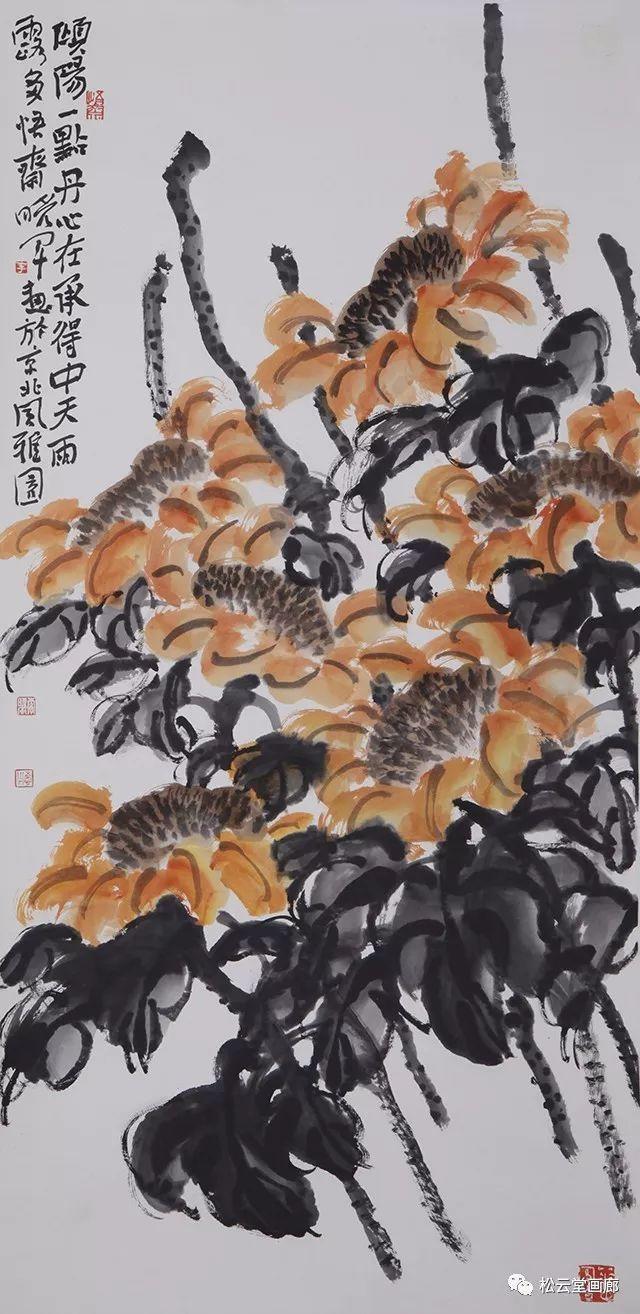 傾陽一點丹心在承得中天雨
露多悟齋晓军画於京北风雅園
松云堂画廊